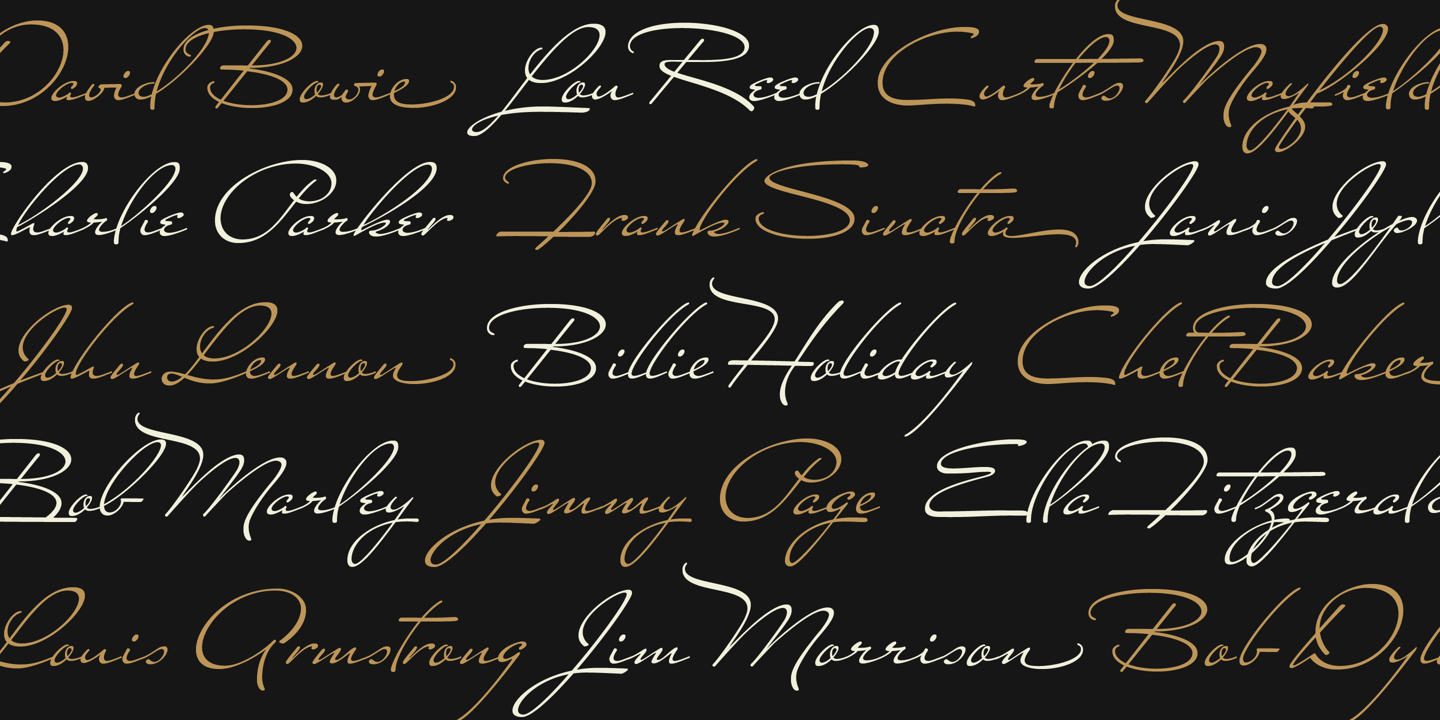 David Bowie Lou Reed Curtis Mayfield
Charlie Parker Frank Sinatra Janis Jopl
John Lennon Billie Holiday Chet Baker
Bob Marley Jimmy Page Ella Fitzgerald
Louis Armstrong Jim Morrison Bob Dyl